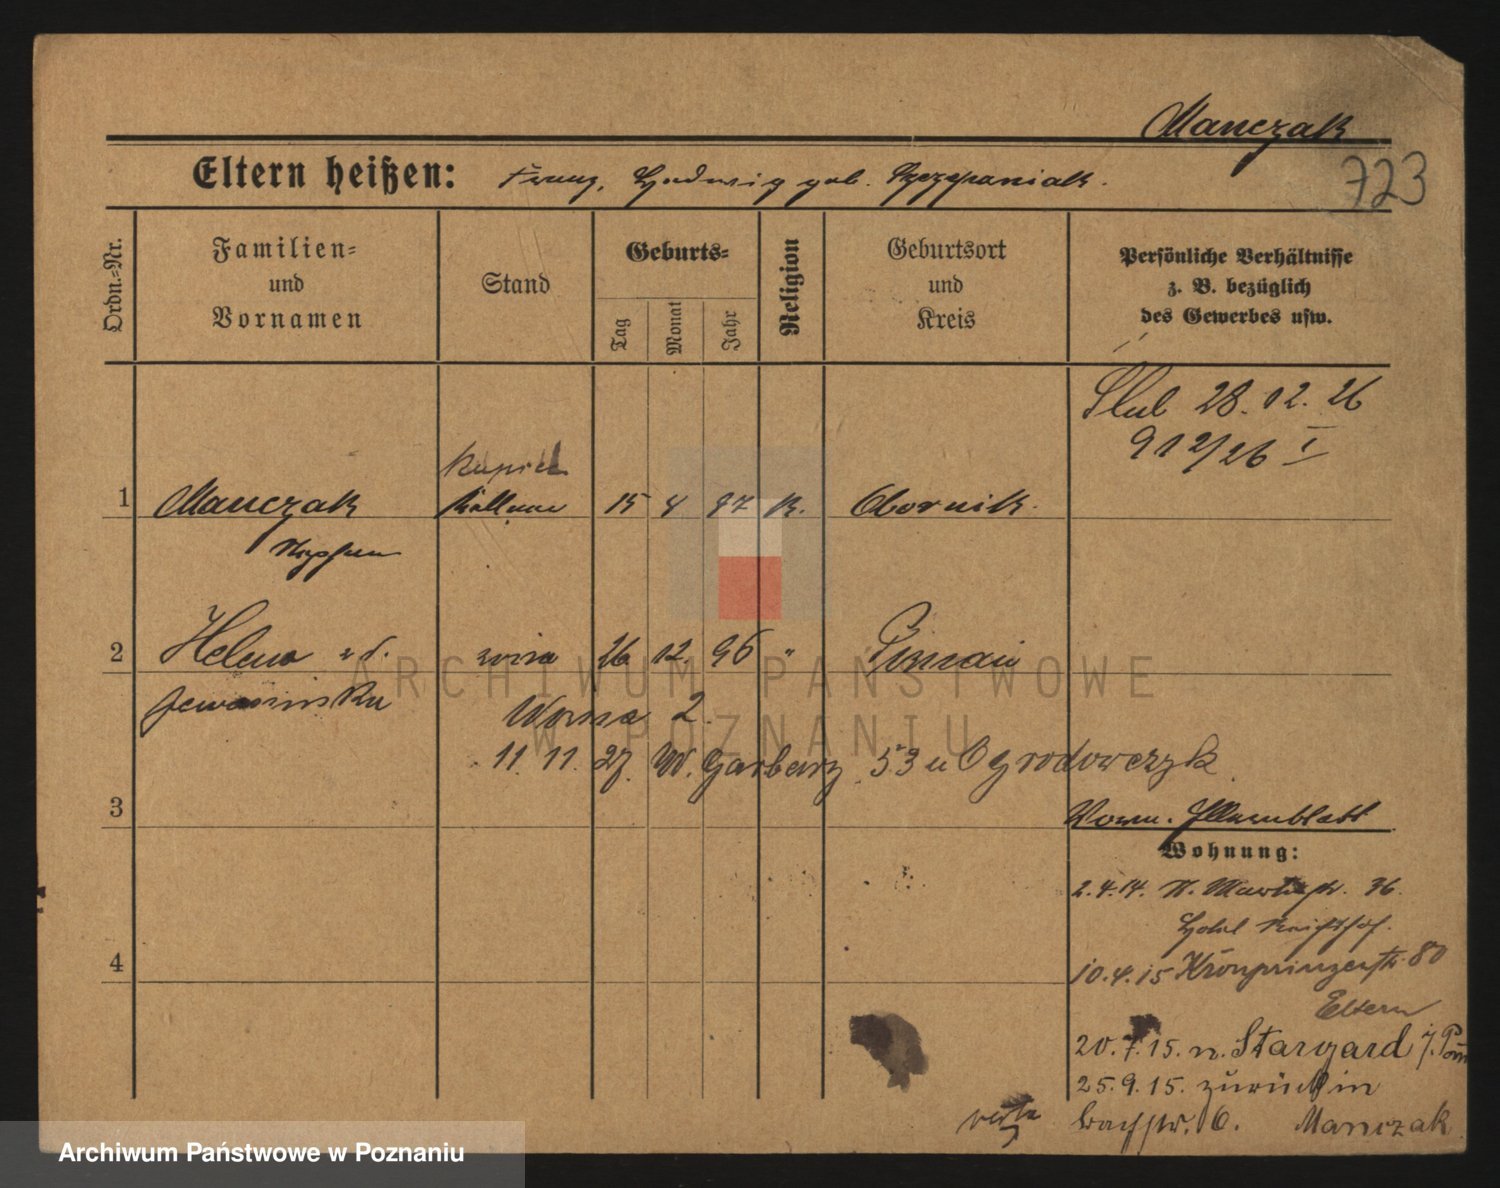 Manczak
723
Eltern heißen: Franz, Hedwig geb. Szczepaniak.
Ordn.-Nr.
Familien-
und
Vornamen
Stand
Geburts-
Tag
Monat
Jahr
Religion
Geburtsort
und
Kreis
Persönliche Verhältnisse
z. B. bezüglich
des Gewerbes usw.
Ślub 28. 12. 26
912/26 I
1 Manczak Kellner 15 4 97 K. Obornik.
Stephan
2 Helena 26 12. 96 "
11. 11. 27. W. Garbary 53 u Ogrodowczyk
3
Wohnung:
2.4.14. St. Martinstr. 36.
Hotel
4
10.4.15 Kronprinzenstr. 80
Eltern
20.7.15. n. Stargard i. Pom
25.9.15. zurück in
6. Manczak
verte
ARCHIWUM PAŃSTWOWE
W POZNANIU
Archiwum Państwowe w Poznaniu